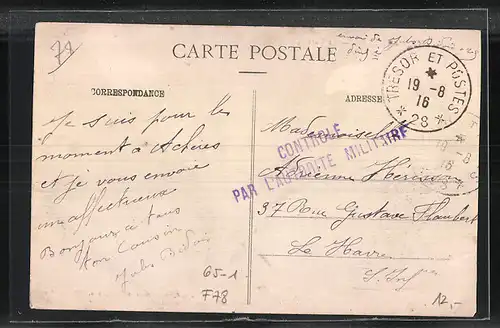 79
envoi de Jules
CARTE POSTALE
TRESOR ET POSTES
19 - 8
16
* 28 *
CORRESPONDANCE
ADRESSE
Je suis pour le
moment à Achères
et je vous envoie
un affectueux
Bonjour à tous
ton Cousin
Jules
CONTROLE
PAR L'AUTORITE MILITAIRE
Mademoiselle
Adrienne Hérisson
37 Rue Gustave Flaubert
Le Havre
S. Infre
65-1
F78
12,-